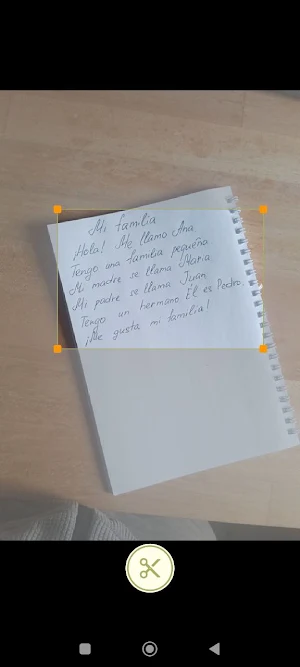 Mi familia
¡Hola! Me llamo Ana.
Tengo una familia pequeña.
Mi madre se llama Maria.
Mi padre se llama Juan.
Tengo un hermano. Él es Pedro.
¡Me gusta mi familia!